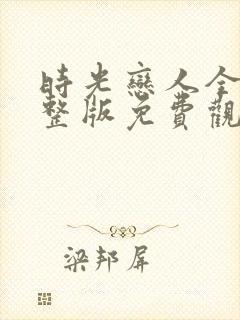 時光戀人全
整版免費觀
梁邦屏